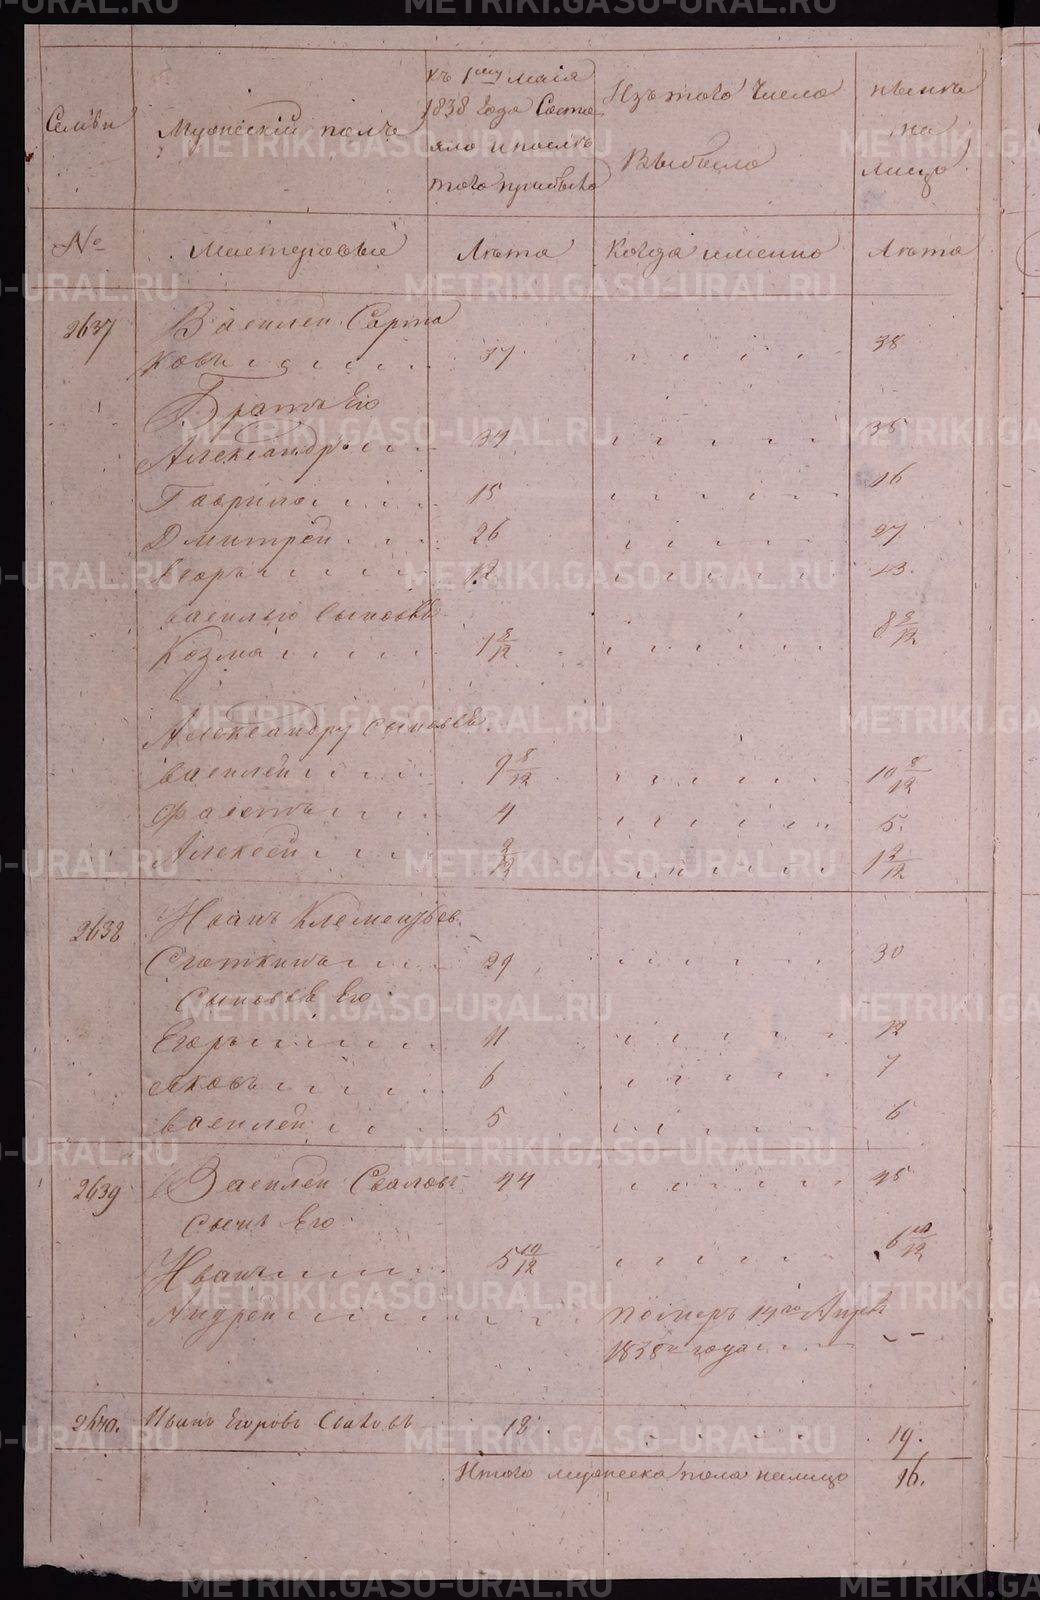 METRIKI.GASO-URAL.RU
Семьи
Мужескiй полъ
къ 1му маiя
1838 года Состо
яло и послѣ
того прибыло
Изъ того Числа
Выбыло
нынѣ
на
лицо
№
Мастеровые
Лѣта
Когда именно
Лѣта
2637
Василей Сорта
ковъ 37 38
Братья Его
Александръ 34 35
Гаврило 15 16
Дмитрей 26 27
Егоръ 12 13
Василью Сыновье
Козма 8/12 8 8/12
Александру Сыновьѣ
Василей 9 8/12 10 8/12
4 5.
Алексей 2/12 1 2/12
2638
Иванъ Клементьев
29 30
Сыновьѣ Его
Егоръ 11 12
Яковъ 6 7
Василей 5 6
2639 Василей 44 45
Сынъ Его
Иванъ 5 10/12 6 10/12
Андрей померъ 14го Апре
1838го года
2640. Иванъ Егоровъ 18. 19.
Итого мужеска пола налицо 16.